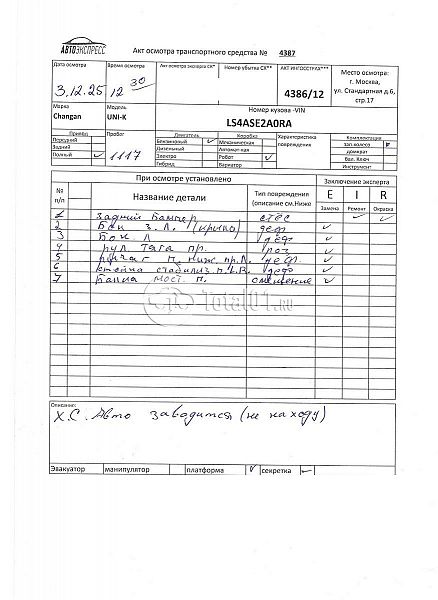 АВТОЭКСПРЕСС
Акт осмотра транспортного средства № 4387
Дата осмотра Время осмотра Акт осмотра эксперта СК* Номер убытка СК** АКТ ИНГОССТРАХ*** Место осмотра:
3.12.25 12 30 4386/12 г. Москва,
ул. Стандартная д.6,
стр.17
Марка Модель Номер кузова -VIN
Changan UNI-K LS4ASE2A0RA
Привод Пробег Двигатель Коробка Характеристика повреждения Комплектация
Передний Бензиновый ✓ Механическая Зап.колесо ✓
Задний Дизельный Автомат-кая домкрат
Полный ✓ 1117 Электро Робот ✓ Бал. Ключ
Гибрид Вариатор Инструмент
При осмотре установлено Заключение эксперта
№ п/п Название детали Тип повреждения (описание см.Ниже E I R
Замена Ремонт Окраска
1 Задний бампер ✓ ✓
2 Бок з. Л. (крыло) деф ✓
3 Бок Л деф ✓
4 рул. тяга пр. ✓
5 Рычаг п. ниж. пр. деф. ✓
6 стойка стабилиз. п. деф ✓
7 Балка мост. п. смещение ✓
Total01.ru
Описание:
Х.С. Авто заводится (не на ходу)
Эвакуатор манипулятор платформа ✓ секретка ✓